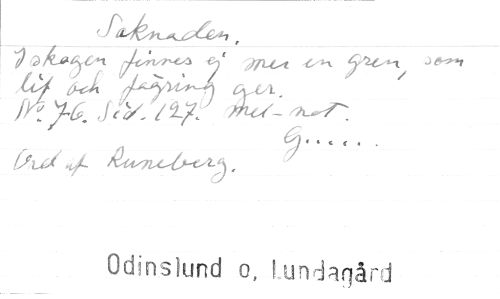 Saknaden.
I skogen finnes ej mer en gren, som
lif och fägring ger.
No. 76. Sid. 127. mel-not.
G......
Ord af Runeberg.
Odinslund o, Lundagård